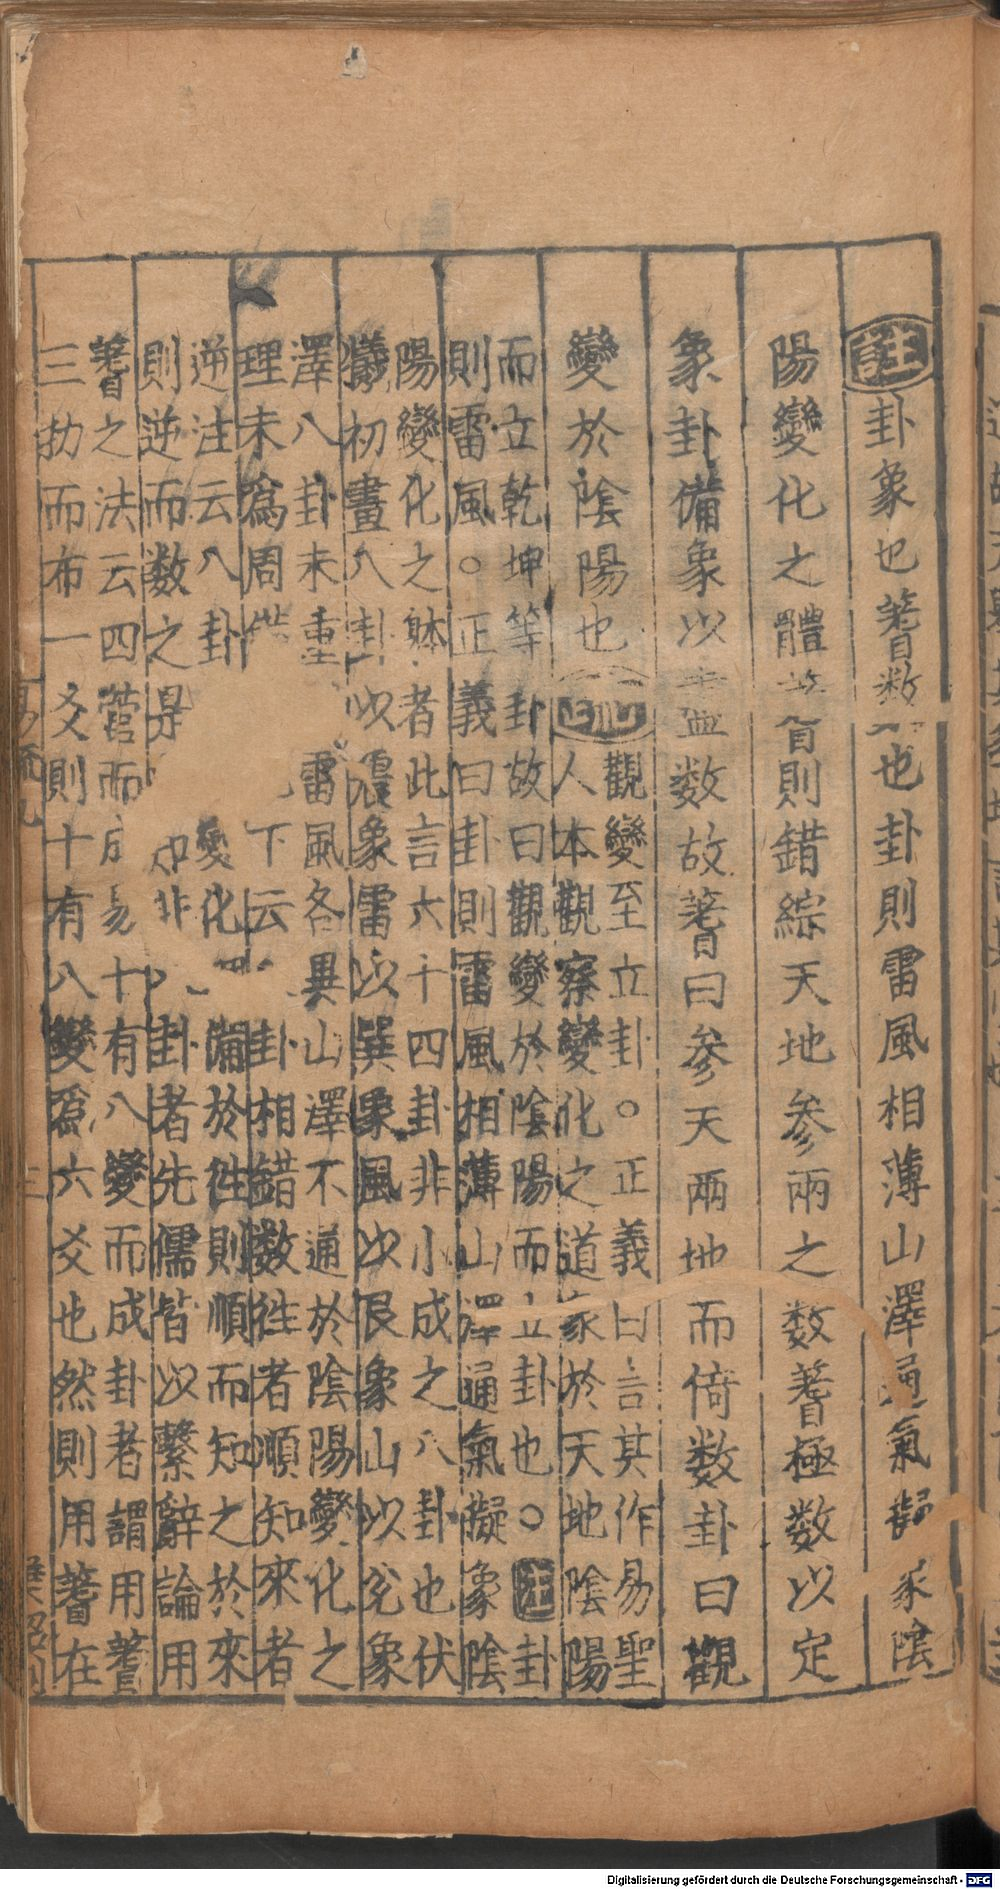 註卦象也蓍数也卦則雷風相薄山澤通氣擬象陰
陽變化之體則錯綜天地參兩之数蓍極数以定
象卦備象以盡数故蓍曰參天兩地而倚数卦曰觀
變於陰陽也
疏觀變至立卦○正義曰言其作易聖
人本觀察變化之道象於天地陰陽
而立乾坤等卦故曰觀變於陰陽而立卦也○註卦
則雷風○正義曰卦則雷風相薄山澤通氣擬象陰
陽變化之体者此言六十四卦非小成之八卦也伏
犧初畫八卦以震象雷以巽象風以艮象山以兌象
澤八卦未重雷風各異山澤不通於陰陽變化之
理未爲周下云卦相錯数徃者順知來者
逆注云八卦變化備於徃則順而知之於來
則逆而数之是知非卦者先儒皆以繫辭論用
蓍之法云四營而成易十有八變而成卦者謂用蓍在
三扐而布一爻則十有八變爲六爻也然則用蓍在
Digitalisierung gefördert durch die Deutsche Forschungsgemeinschaft - DFG